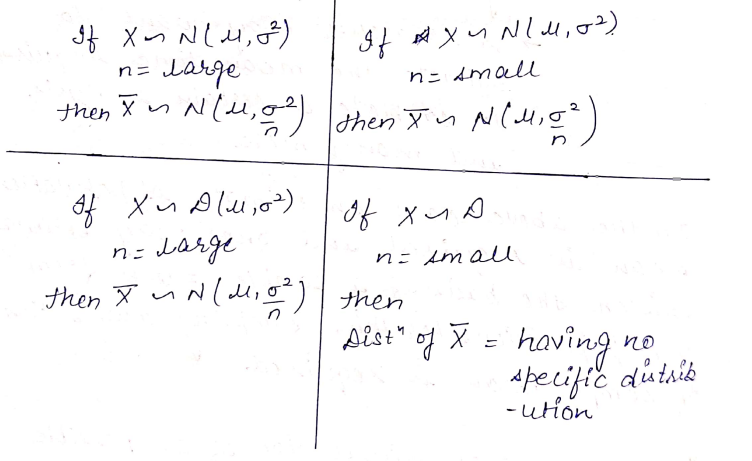 If X ~ N(μ, σ²)
n = large
then X̄ ~ N(μ, σ²/n)
If X ~ N(μ, σ²)
n = small
then X̄ ~ N(μ, σ²/n)
If X ~ D(μ, σ²)
n = large
then X̄ ~ N(μ, σ²/n)
If X ~ D
n = small
then
Distⁿ of X̄ = having no
specific distrib
-ution